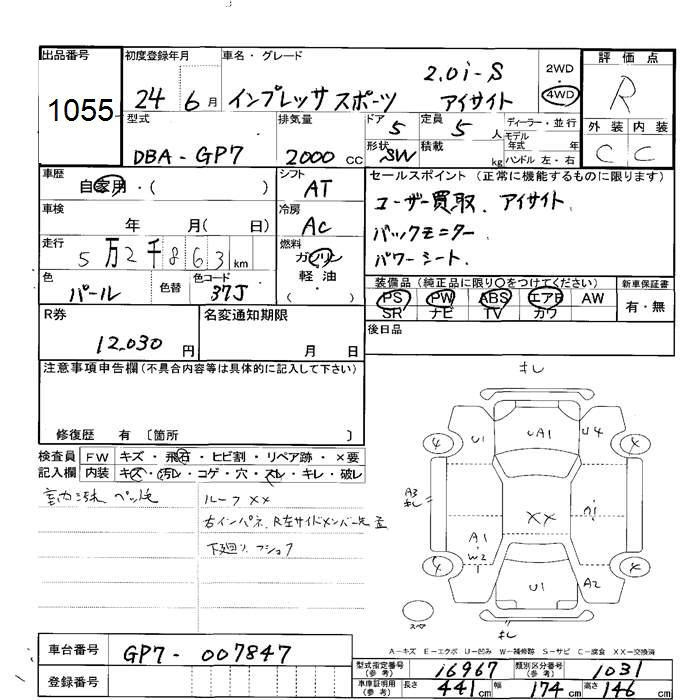 出品番号
1055
初度登録年月
24 6月
車名・グレード
インプレッサスポーツ
2.0i-S
アイサイト
2WD
4WD
評価点
R
外装 内装
C C
型式
DBA-GP7
排気量
2000 CC
ドア 5
形状 SW
定員 5 人
積載 kg
ディーラー・並行
モデル年式 年
ハンドル 左・右
車歴
自家用・( )
シフト
AT
セールスポイント (正常に機能するものに限ります)
ユーザー買取、アイサイト、
バックモニター
パワーシート、
車検
年 月( 日)
冷房
AC
走行
5万2千863 km
燃料
ガソリン
軽油
( )
色
パール
色替
色コード
37J
装備品 (純正品に限り○をつけてください)
PS PW ABS エアB AW
SR ナビ TV カワ
新車保証書
有・無
R券
12,030 円
名変通知期限
月 日
後日品
注意事項申告欄 (不具合内容等は具体的に記入して下さい)
修復歴 有 〔箇所 〕
検査員記入欄
FW キズ・飛石・ヒビ割・リペア跡・×要
内装 キズ・汚レ・コゲ・穴・スレ・キレ・破レ
ルーフXX
下廻り
キレ
U1 UA1 U4
A3
キレ
XX
A1
W2
U1 A2
キレ
スペア
A−キズ E−エクボ U−凹み W−補修跡 S−サビ C−腐食 XX−交換済
車台番号
GP7-007847
登録番号
型式指定番号(参考)
16967
類別区分番号(参考)
1031
車庫証明用(参考)
長さ 441 cm 幅 174 cm 高さ 146 cm